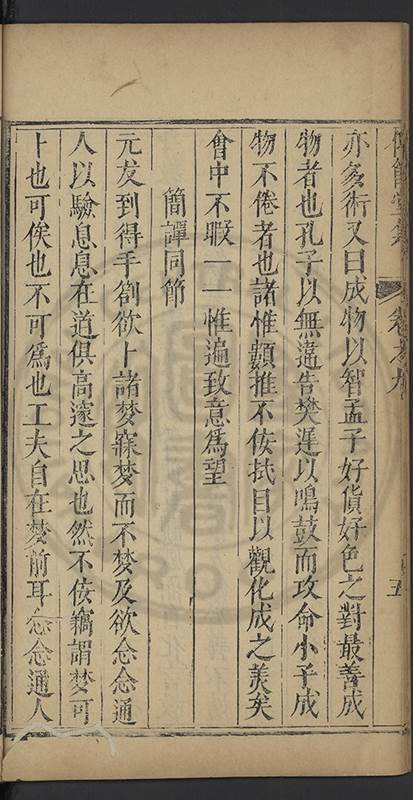 卷之九
五
亦多術又曰成物以智孟子好貨好色之對最善成
物者也孔子以無違告樊遲以鳴鼓而攻命小子成
物不倦者也諸惟顴推不佞拭目以觀化成之羙矣
會中不暇一一惟遍致意爲望
簡譚同節
元友到得手劄欲卜諸梦寐梦而不梦及欲念念通
人以驗息息在道俱高邃之思也然不佞竊謂梦可
卜也可俟也不可爲也工夫自在梦前耳念念通人